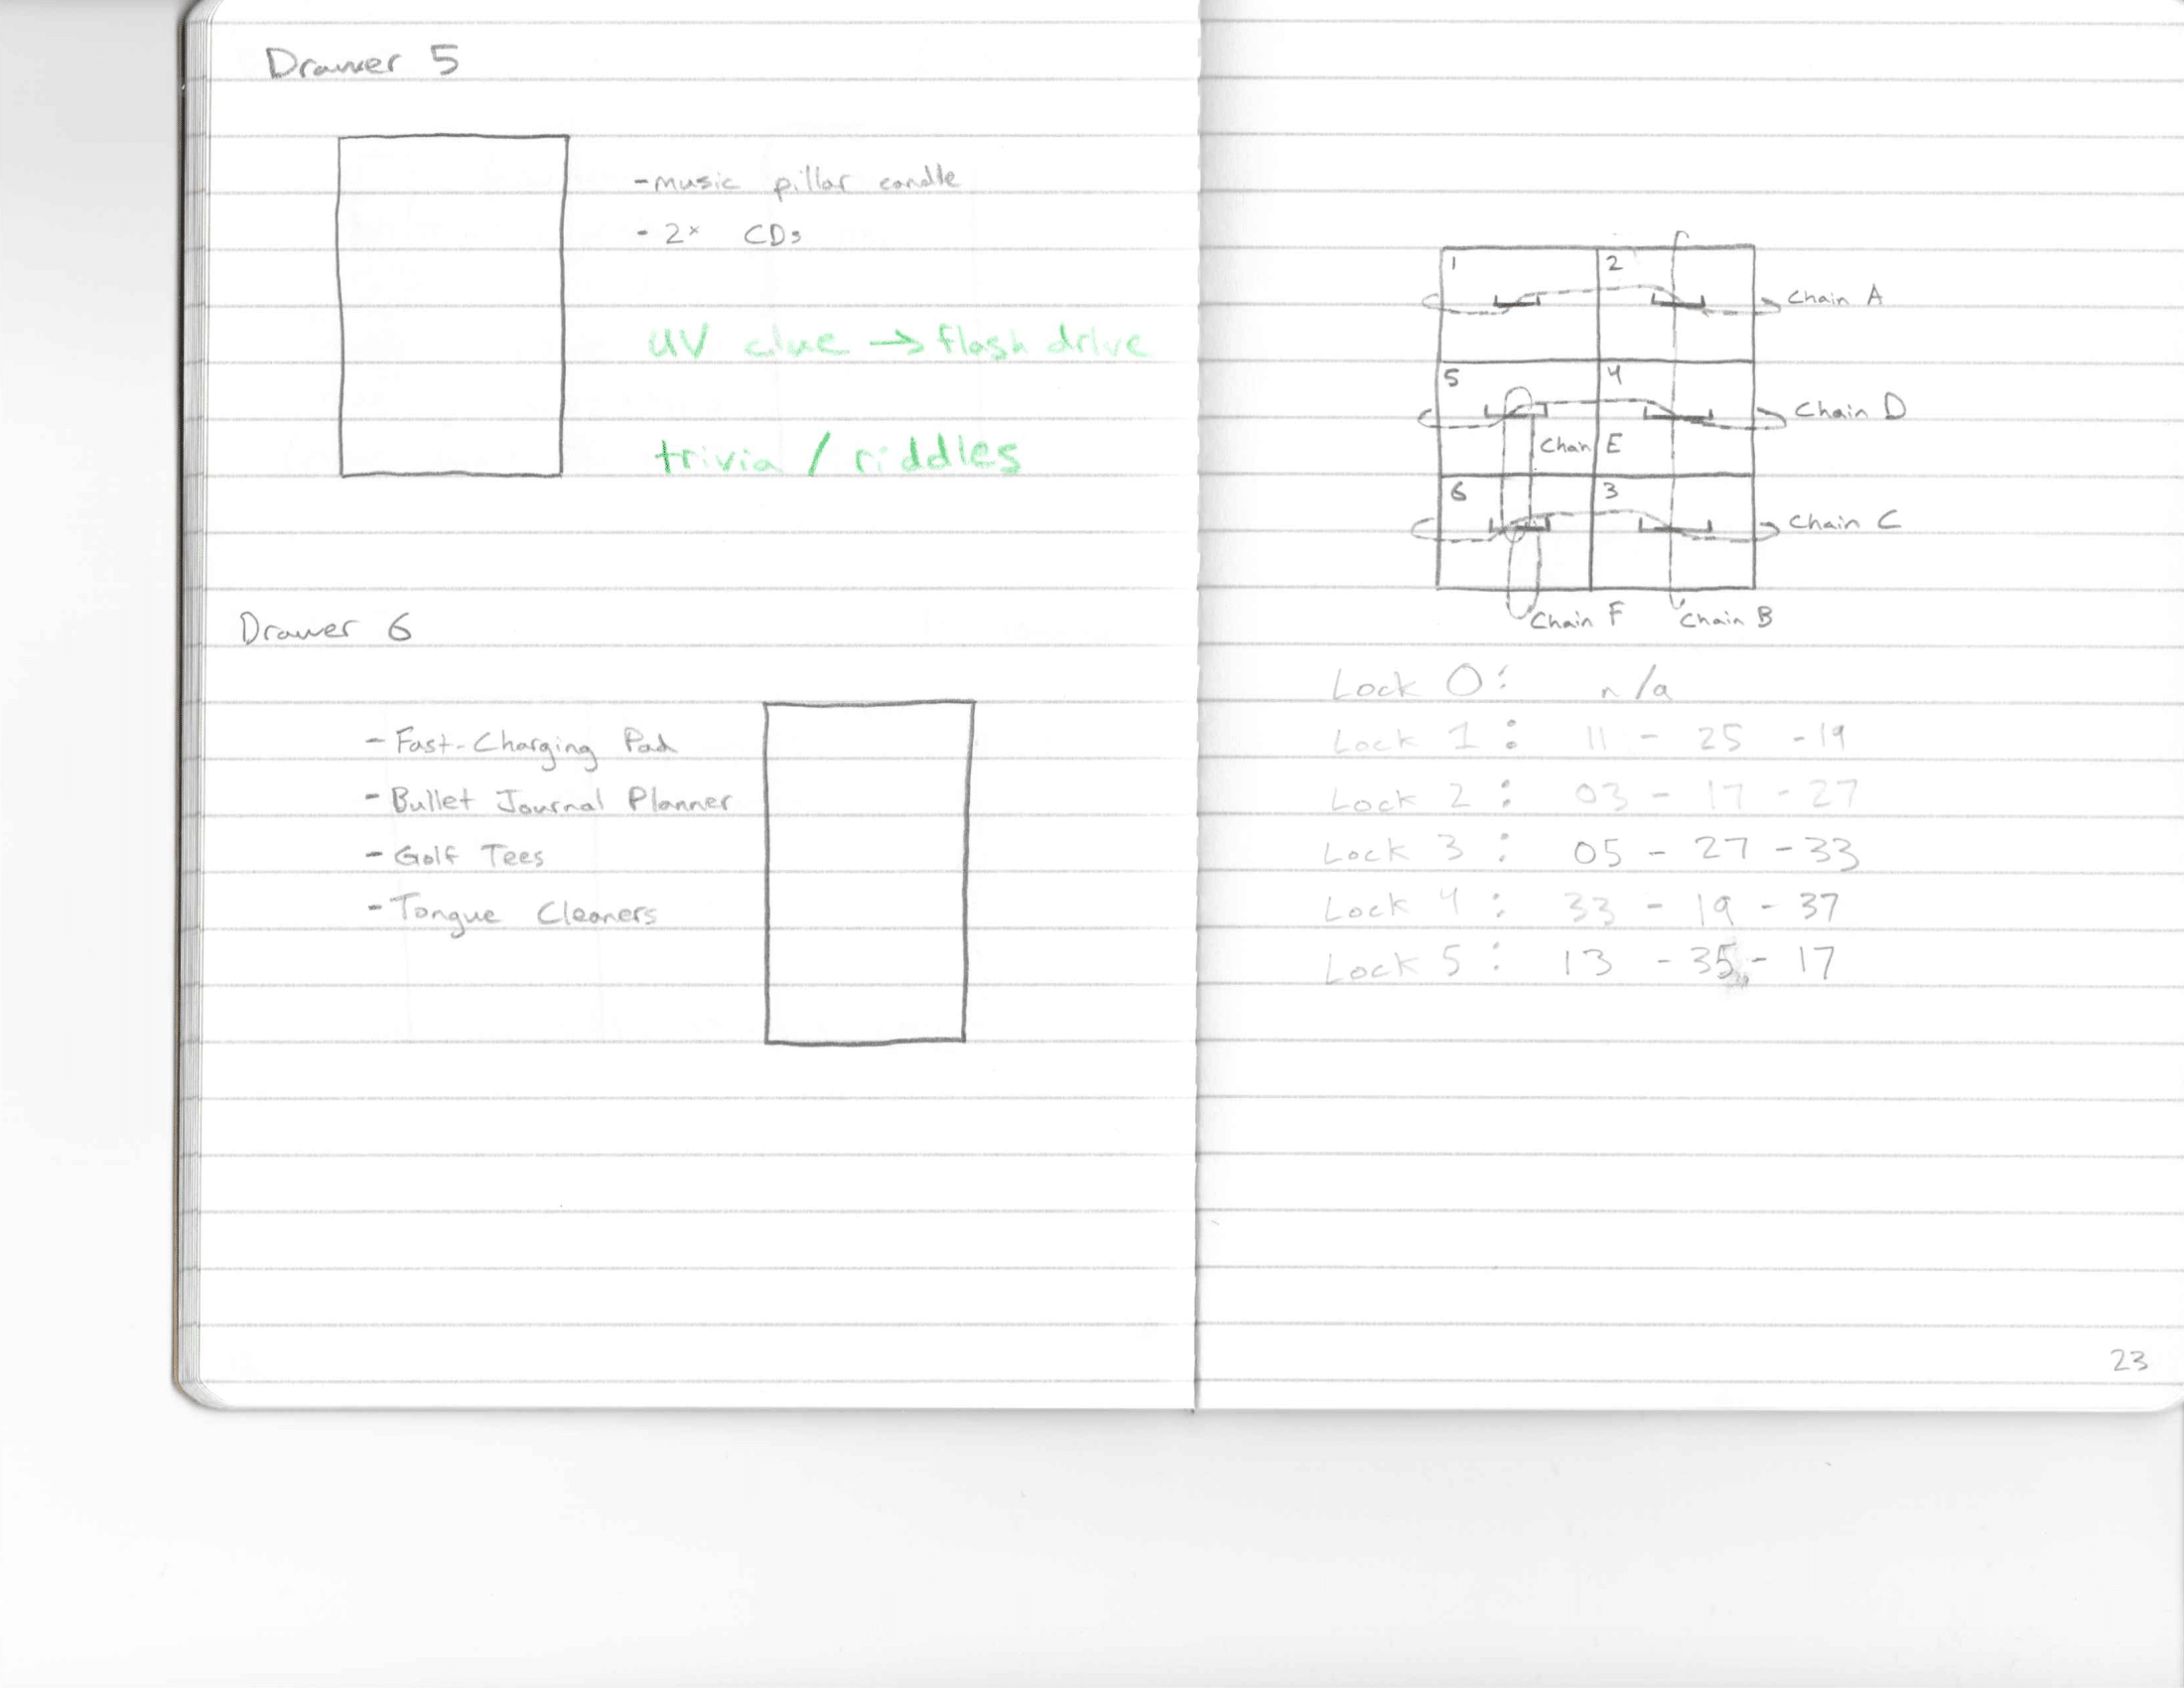 Drawer 5
-music pillar candle
- 2x CDs
UV clue → flash drive
trivia / riddles
Drawer 6
- Fast-Charging Pad
- Bullet Journal Planner
- Golf Tees
- Tongue Cleaners
1 2
Chain A
5 4
Chain D
Chain E
6 3
Chain C
Chain F Chain B
Lock 0: n/a
Lock 1: 11 - 25 - 19
Lock 2: 03 - 17 - 27
Lock 3: 05 - 27 - 33
Lock 4: 33 - 19 - 37
Lock 5: 13 - 35 - 17
23